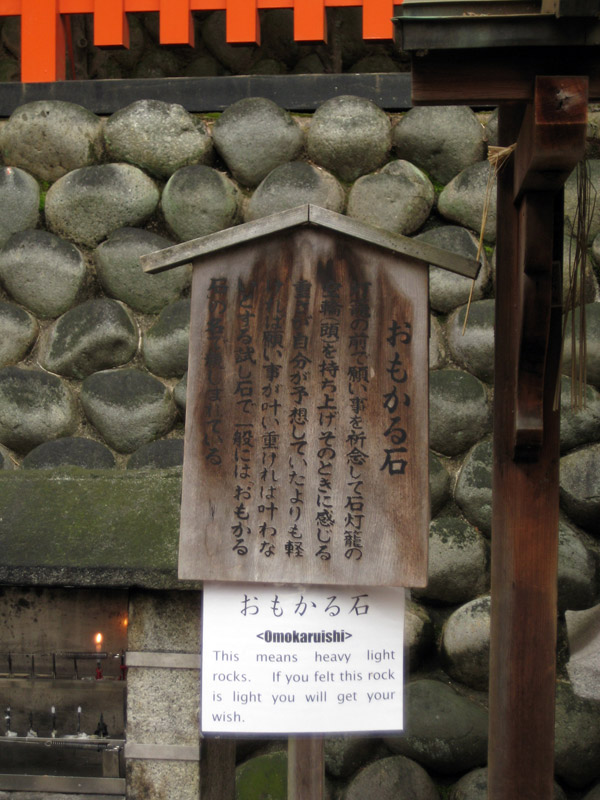 おもかる石
灯籠の前で願い事を祈念して石灯籠の
空輪(頭)を持ち上げそのときに感じる
重さが自分が予想していたよりも軽
ければ願い事が叶い重ければ叶わな
いとする試し石で一般には、おもかる
しまれている
おもかる石
<Omokaruishi>
This means heavy light
rocks. If you felt this rock
is light you will get your
wish.